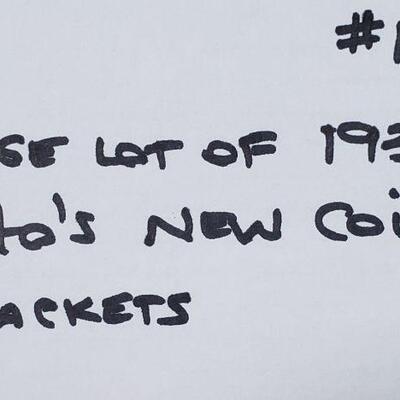 #
SE LOT OF 193
40's NEW COI
ACKETS